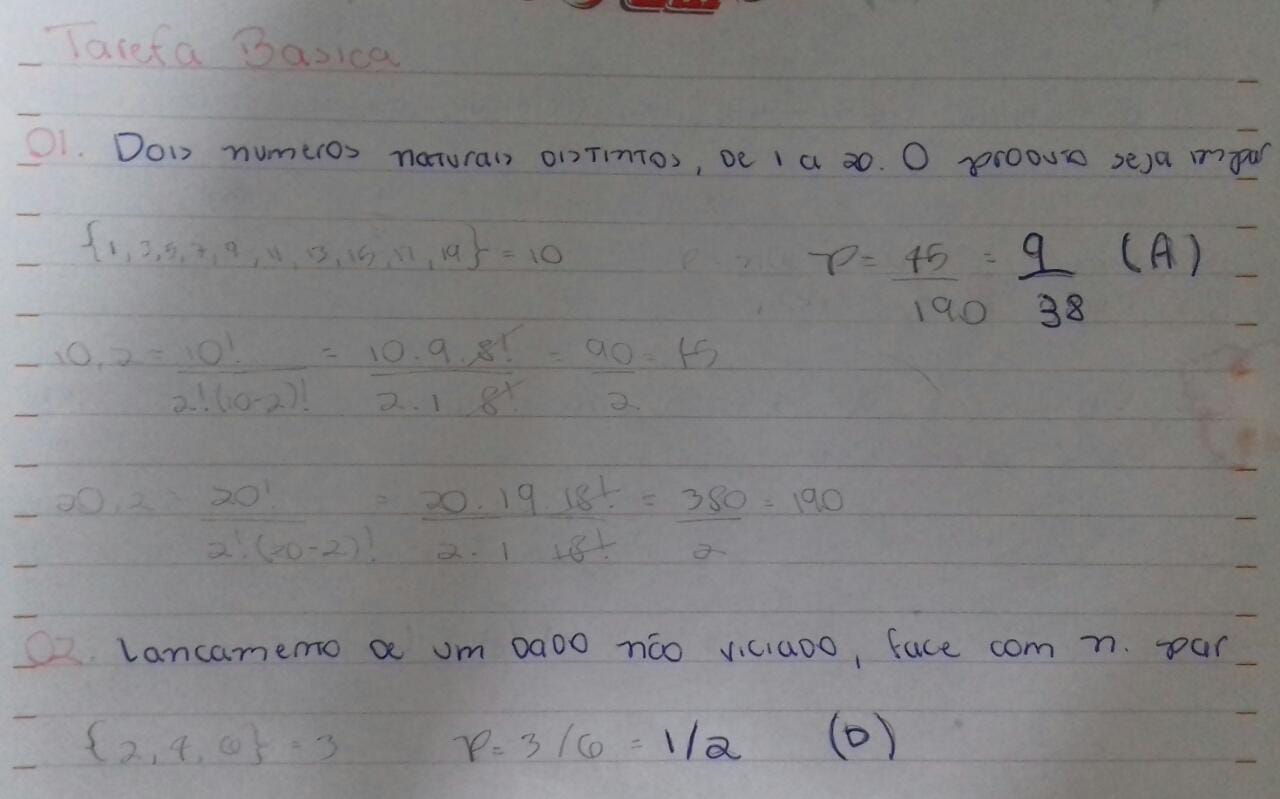 Tarefa Basica
01. Dois numeros naturais distintos, de 1 a 20. O produto seja impar
{1, 3, 5, 7, 9, 11, 13, 15, 17, 19} = 10
P = 45/190 = 9/38 (A)
10,2 = 10!/2!(10-2)! = 10.9.8!/2.1 8! = 90/2 = 45
20,2 = 20!/2!(20-2)! = 20.19 18!/2.1 18! = 380/2 = 190
02. Lancamento de um dado não viciado, face com n. par
{2, 4, 6} = 3 P = 3/6 = 1/2 (D)